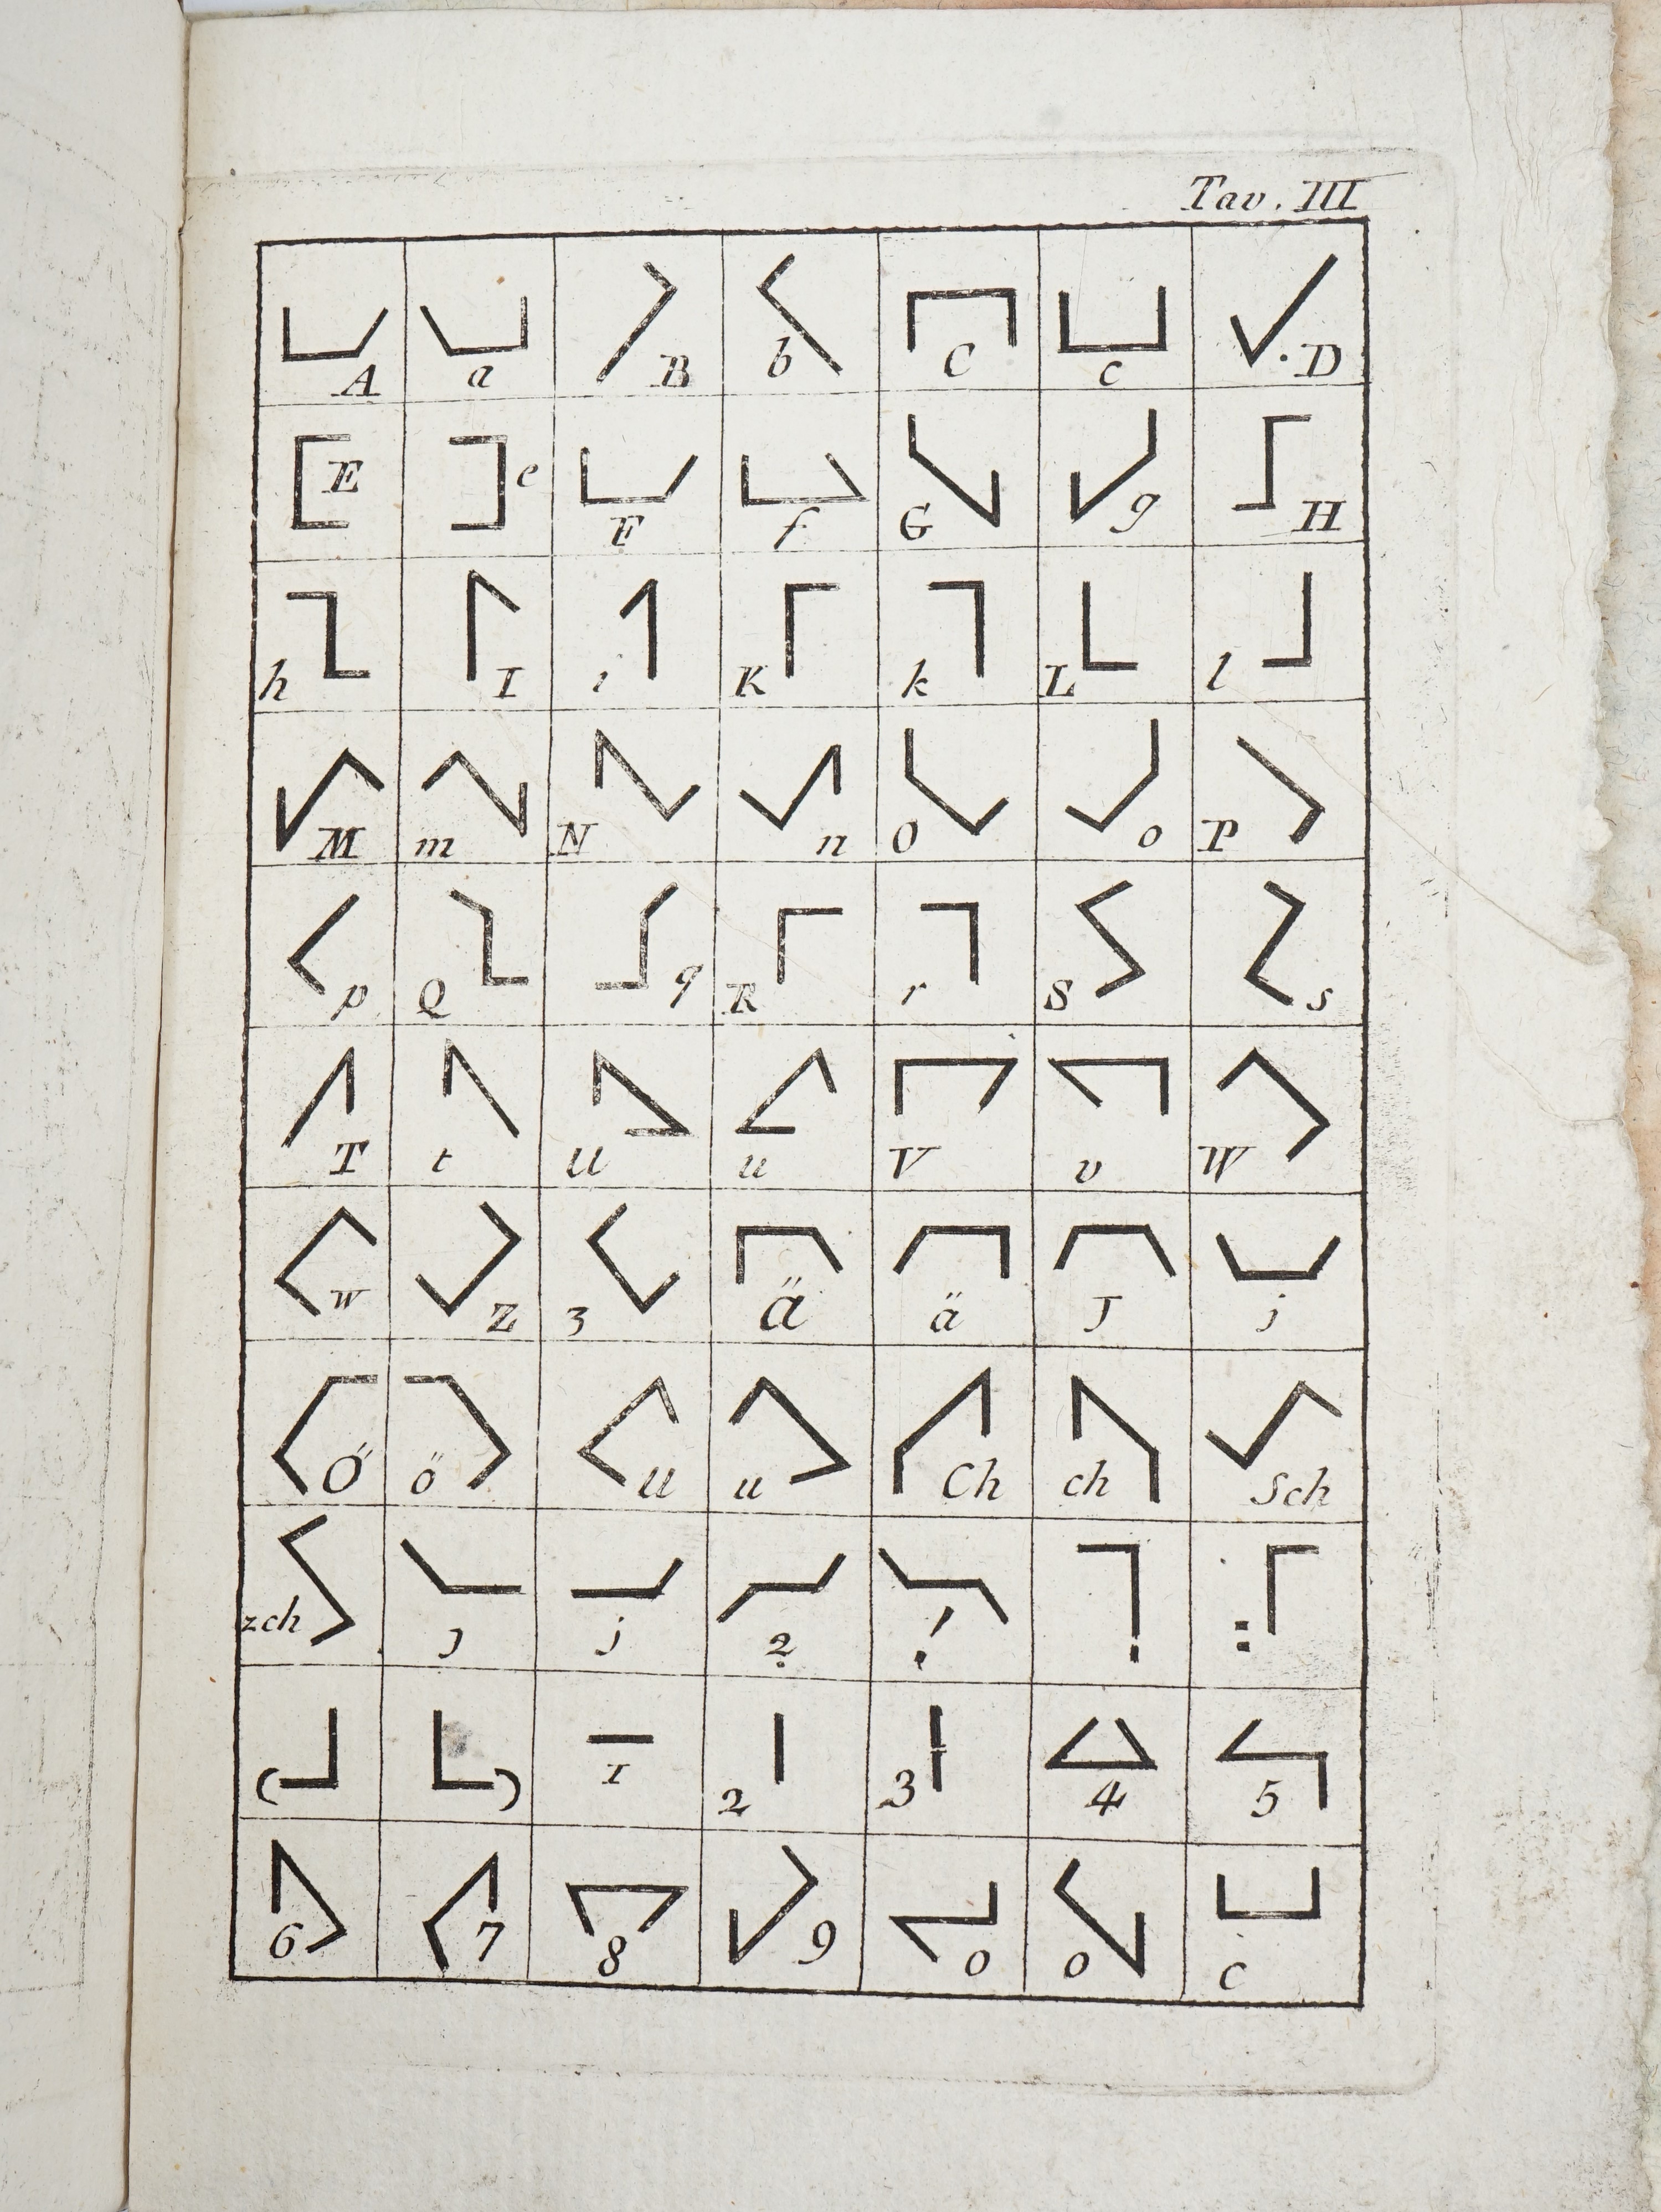 Tav. III
A a B b C c .D
E e F f G g H
h I i K k L l
M m N n O o P
p Q q R r S s
T t U u V v W
w Z 3 Ä ä J j
Ö ö U u Ch ch Sch
zch J j ? ! . :
( ) 1 2 3 4 5
6 7 8 9 0 0 C